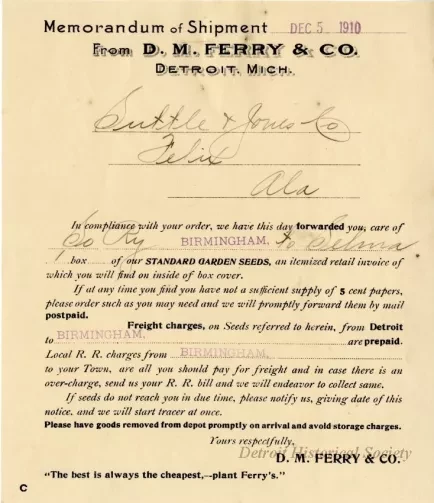 Memorandum of Shipment DEC 5 1910
From D. M. FERRY & CO.
DETROIT, MICH.
Suttle & Jones Co
Felix
Ala
In compliance with your order, we have this day forwarded you, care of
So Ry BIRMINGHAM, to Selma
box of our STANDARD GARDEN SEEDS, an itemized retail invoice of
which you will find on inside of box cover.
If at any time you find you have not a sufficient supply of 5 cent papers,
please order such as you may need and we will promptly forward them by mail
postpaid.
Freight charges, on Seeds referred to herein, from Detroit
to BIRMINGHAM, are prepaid.
Local R. R. charges from BIRMINGHAM,
to your Town, are all you should pay for freight and in case there is an
over-charge, send us your R. R. bill and we will endeavor to collect same.
If seeds do not reach you in due time, please notify us, giving date of this
notice, and we will start tracer at once.
Please have goods removed from depot promptly on arrival and avoid storage charges.
Yours respectfully,
Detroit Historical Society
D. M. FERRY & CO.
"The best is always the cheapest,--plant Ferry's."
C